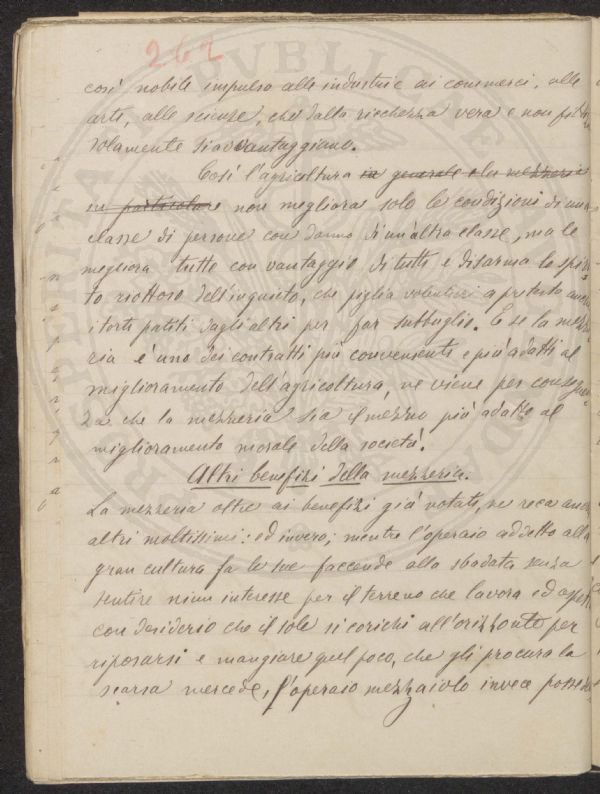 262
così nobile impulso alle industrie ai commerci, alle
arti, alle scienze, che dalla ricchezza vera e non fit
solamente si avvantaggiano.
Così l'agricoltura in generale e la mezzeria
in particolare non migliora solo le condizioni di una
classe di persone con danno di un'altra classe, ma le
migliora tutte con vantaggio di tutti e disarma lo spiri
to riottoso dell'inquieto, che piglia volentieri a pretesto anche
i torti patiti dagli altri per far subbuglio. E se la mezze
ria è uno dei contratti più convenienti e più adatti al
miglioramento dell'agricoltura, ne viene per conseguen
za che la mezzeria sia il mezzo più adatto al
miglioramento morale della società.
Altri benefizi della mezzeria.
La mezzeria oltre ai benefizi già notati, ne reca anche
altri moltissimi: ed invero; mentre l'operaio addetto alla
gran cultura fa le sue faccende alla sbadata senza
sentire niun interesse per il terreno che lavora ed aspetta
con desiderio che il sole si corichi all'orizzonte per
riposarsi e mangiare quel poco, che gli procura la
scarsa mercede, l'operaio mezzaiolo invece possede